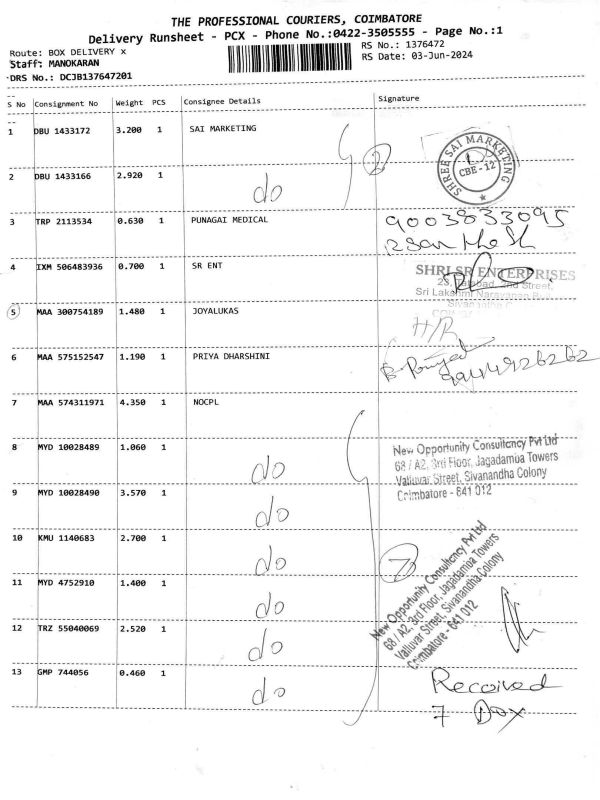 THE PROFESSIONAL COURIERS, COIMBATORE
Delivery Runsheet - PCX - Phone No.:0422-3505555 - Page No.:1
Route: BOX DELIVERY x
RS No.: 1376472
Staff: MANOKARAN
RS Date: 03-Jun-2024
DRS No.: DCJB137647201
S No Consignment No Weight PCS Consignee Details Signature
1 DBU 1433172 3.200 1 SAI MARKETING
SHREE SAI MARKETING
CBE-12
2
2 DBU 1433166 2.920 1 do
3 TRP 2113534 0.630 1 PUNAGAI MEDICAL
9003833095
4 IXM 506483936 0.700 1 SR ENT
SHRI SR ENTERPRISES
2nd Street,
Sri Lakshmi Narayanan
5 MAA 300754189 1.480 1 JOYALUKAS
H/R
6 MAA 575152547 1.190 1 PRIYA DHARSHINI
9444926262
7 MAA 574311971 4.350 1 NOCPL
8 MYD 10028489 1.060 1 do
New Opportunity Consultancy Pvt Ltd
68 / A2, 3rd Floor, Jagadamba Towers
Valluvar Street, Sivanandha Colony
Coimbatore - 641 012
9 MYD 10028490 3.570 1 do
10 KMU 1140683 2.700 1 do
7
New Opportunity Consultancy Pvt Ltd
68 / A2, 3rd Floor, Jagadamba Towers
Valluvar Street, Sivanandha Colony
Coimbatore - 641 012
11 MYD 4752910 1.400 1 do
12 TRZ 55040069 2.520 1 do
13 GMP 744056 0.460 1 do
Received
7 Box